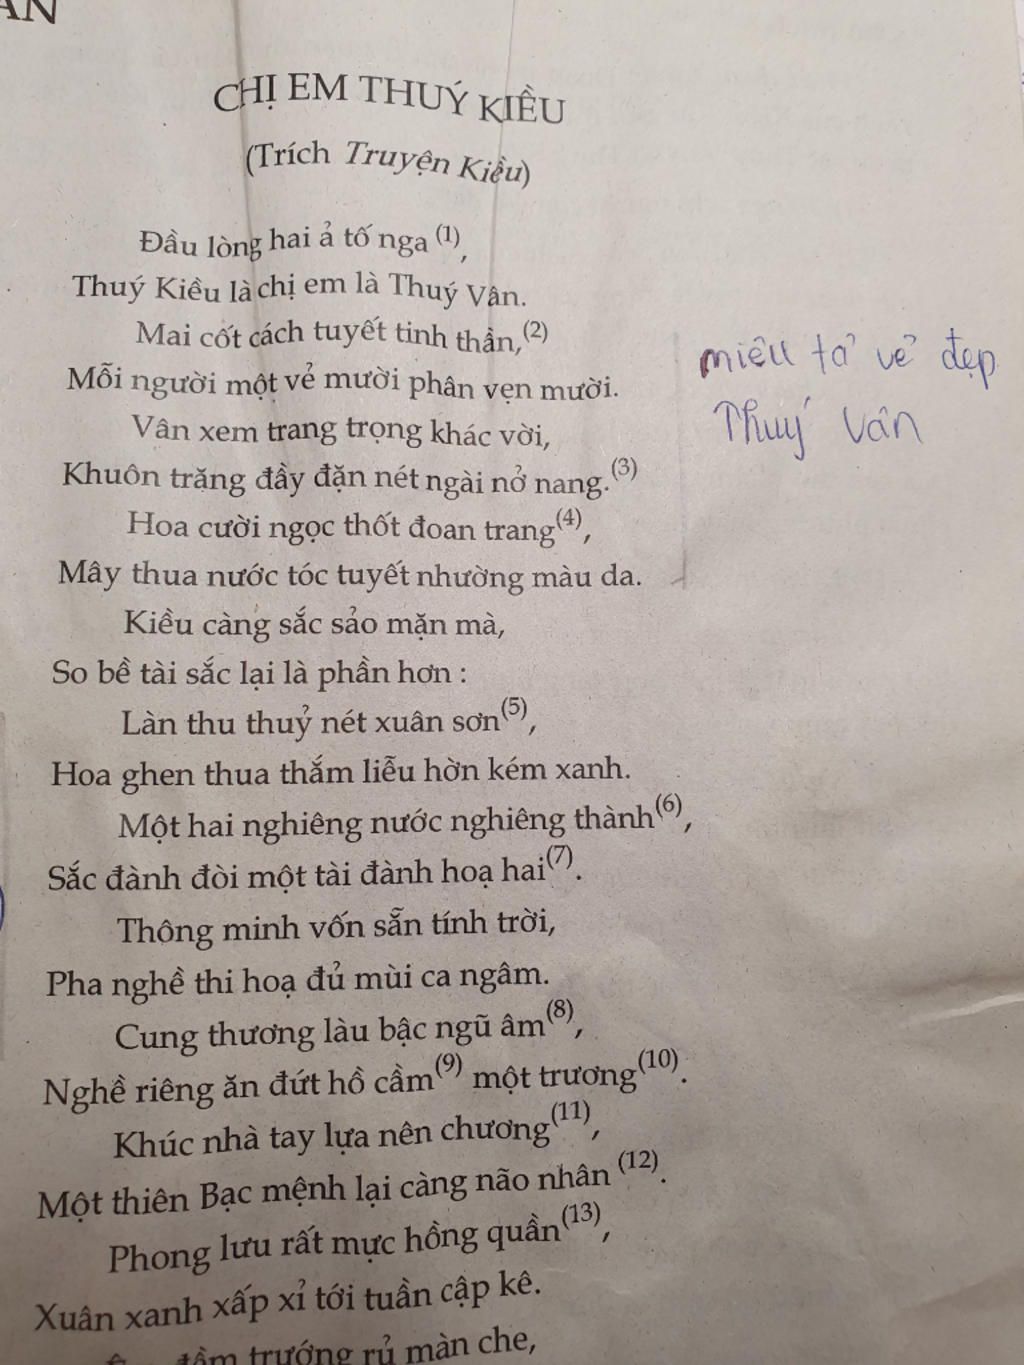 CHỊ EM THUÝ KIỀU
(Trích Truyện Kiều)
Đầu lòng hai ả tố nga (1),
Thuý Kiều là chị em là Thuý Vân.
Mai cốt cách tuyết tinh thần,(2)
Mỗi người một vẻ mười phân vẹn mười.
miêu tả vẻ đẹp
Thuý Vân
Vân xem trang trọng khác vời,
Khuôn trặng đầy đặn nét ngài nở nang.(3)
Hoa cười ngọc thốt đoan trang(4),
Mây thua nước tóc tuyết nhường màu da.
Kiều càng sắc sảo mặn mà,
So bề tài sắc lại là phần hơn :
Làn thu thuỷ nét xuân sơn(5),
Hoa ghen thua thắm liễu hờn kém xanh.
Một hai nghiêng nước nghiêng thành(6),
Sắc đành đòi một tài đành hoạ hai(7).
Thông minh vốn sẵn tính trời,
Pha nghề thi hoạ đủ mùi ca ngâm.
Cung thương làu bậc ngũ âm(8),
Nghề riêng ăn đứt hồ cầm(9) một trương(10).
Khúc nhà tay lựa nên chương(11),
Một thiên Bạc mệnh lại càng não nhân (12).
Phong lưu rất mực hồng quần(13),
Xuân xanh xấp xỉ tới tuần cập kê.
trướng rủ màn che,